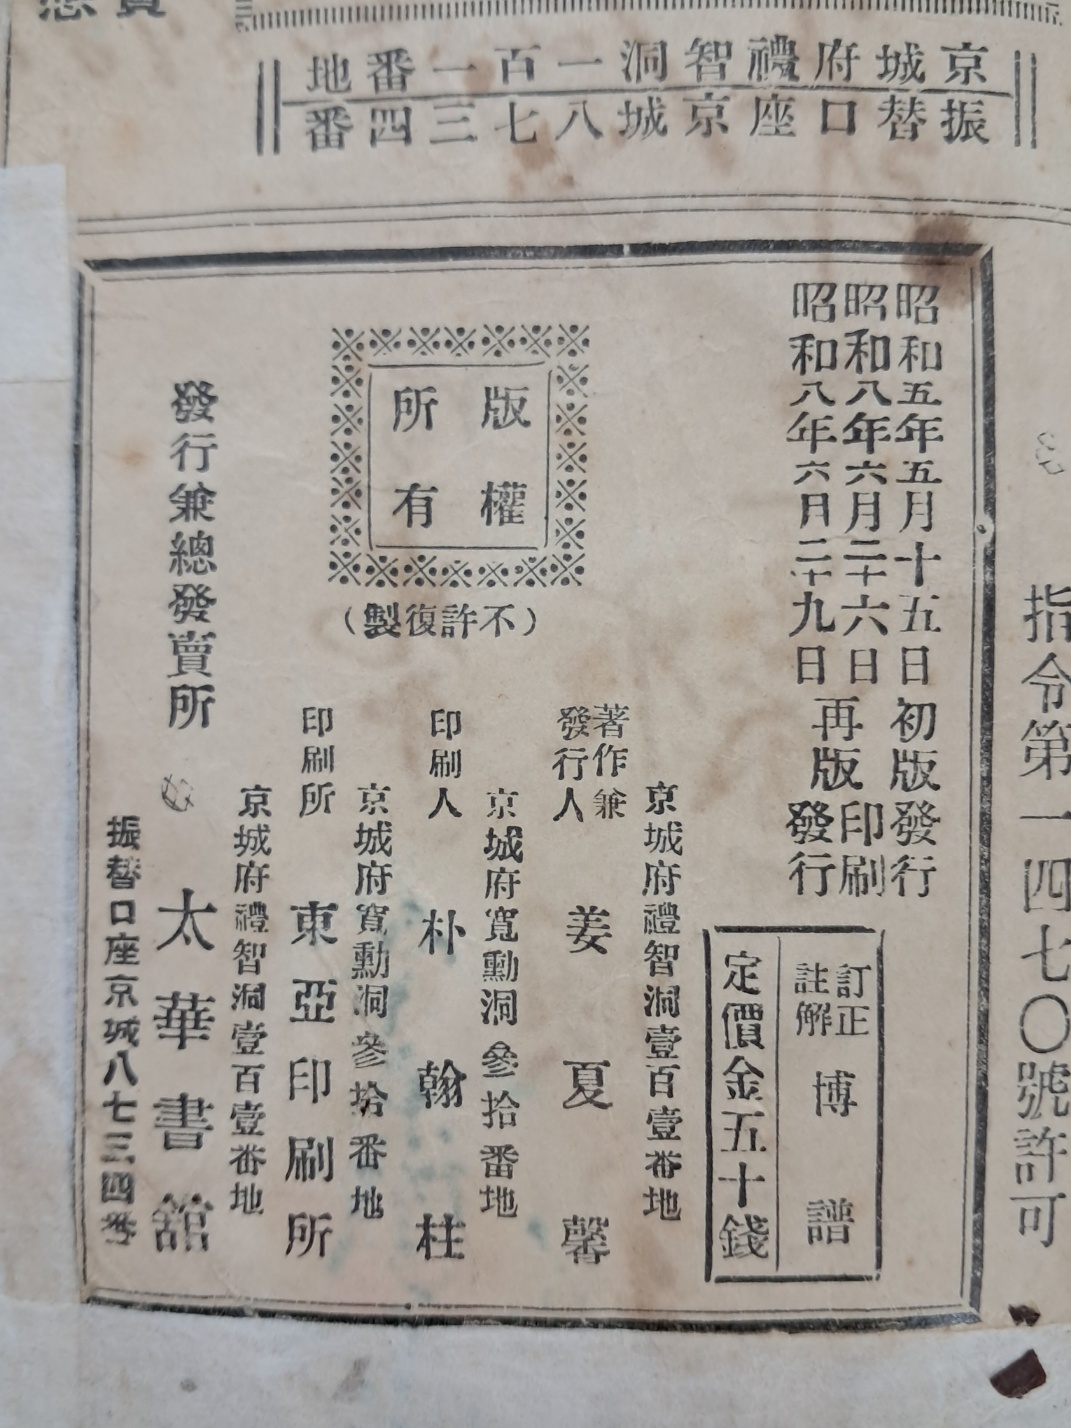 京城府禮智洞一百一番地
振替口座京城八七三四番
指令第一四七〇號許可
昭和五年五月十五日初版發行
昭和八年六月二十六日再版印刷
昭和八年六月二十九日再版發行
訂正註解 博譜
定價金五十錢
版權所有
(不許復製)
京城府禮智洞壹百壹番地
著作兼發行人 姜夏馨
京城府寬勳洞參拾番地
印刷人 朴翰柱
京城府寬勳洞參拾番地
印刷所 東亞印刷所
京城府禮智洞壹百壹番地
發行兼總發賣所 太華書舘
振替口座京城八七三四番